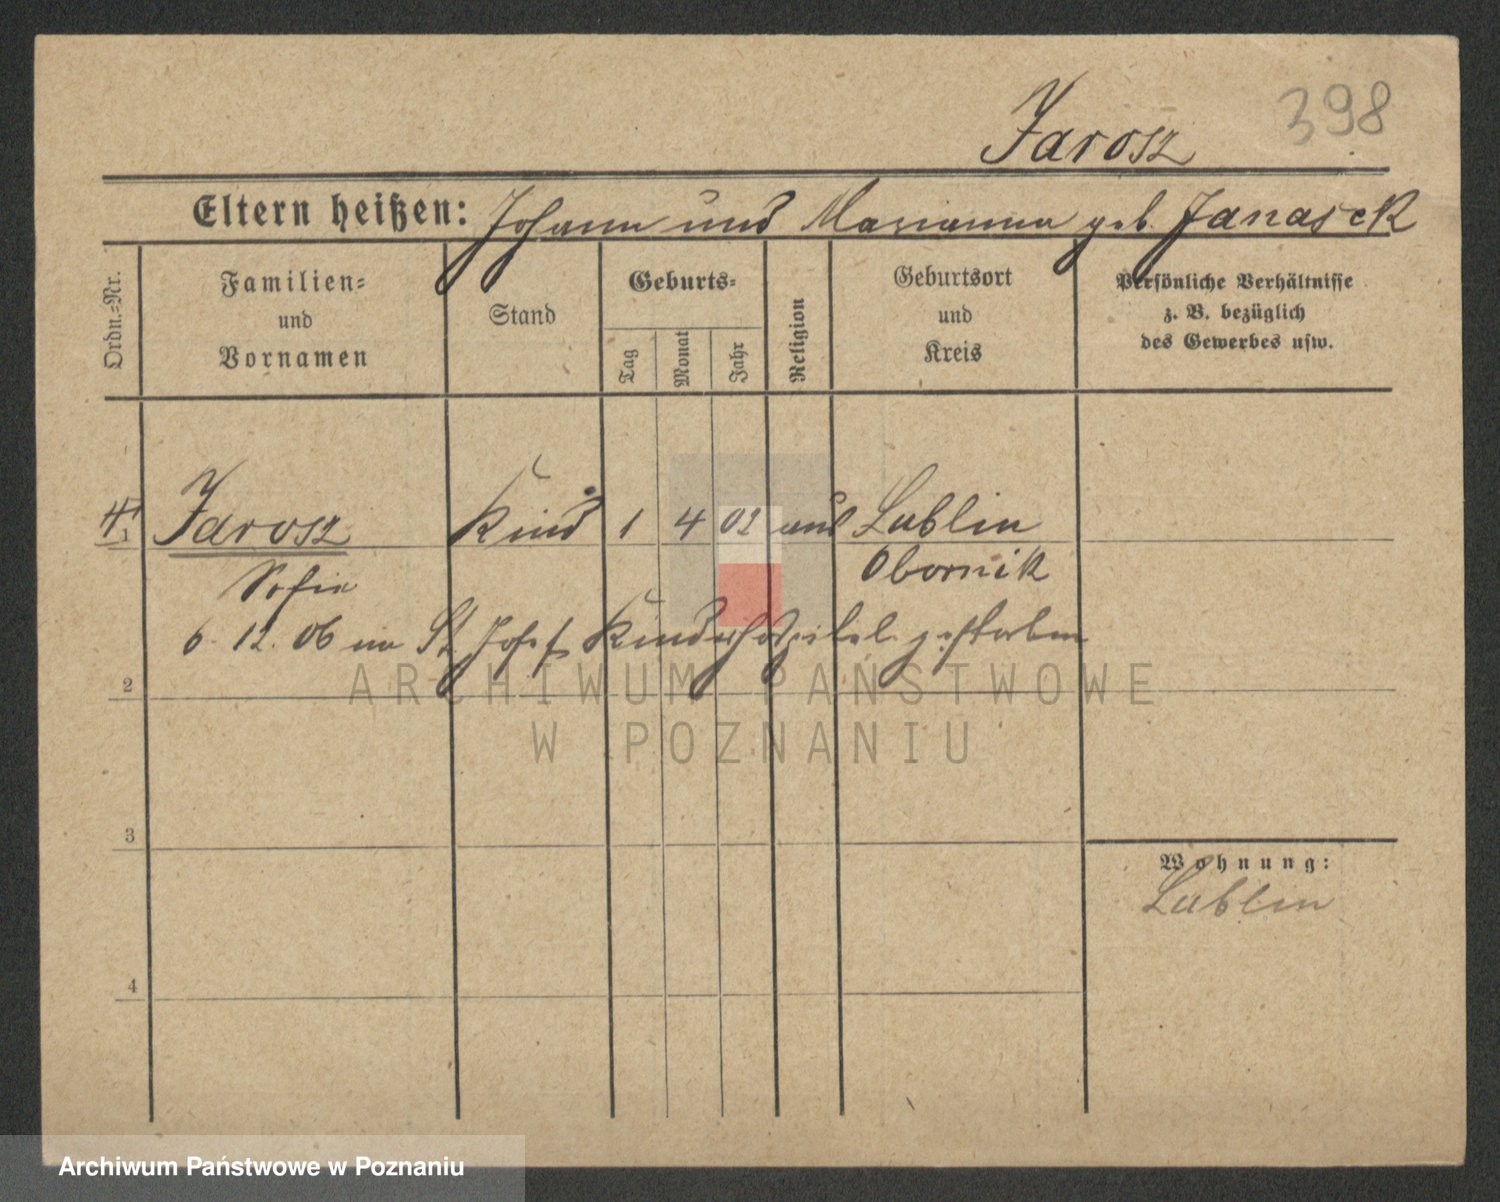 398
Jarosz
Eltern heißen: Johann und Marianna geb. Janasek
Ordn.=Nr.
Familien=
und
Vornamen
Stand
Geburts=
Tag
Monat
Jahr
Religion
Geburtsort
und
Kreis
Persönliche Verhältnisse
z. B. bezüglich
des Gewerbes usw.
1
Jarosz Kind 1 4 02 Lublin
Sofie Obornik
6. 12. 06 im St. Josef Kinderhospital gestorben
2
3
4
Wohnung:
Lublin
ARCHIWUM PAŃSTWOWE
W POZNANIU
Archiwum Państwowe w Poznaniu